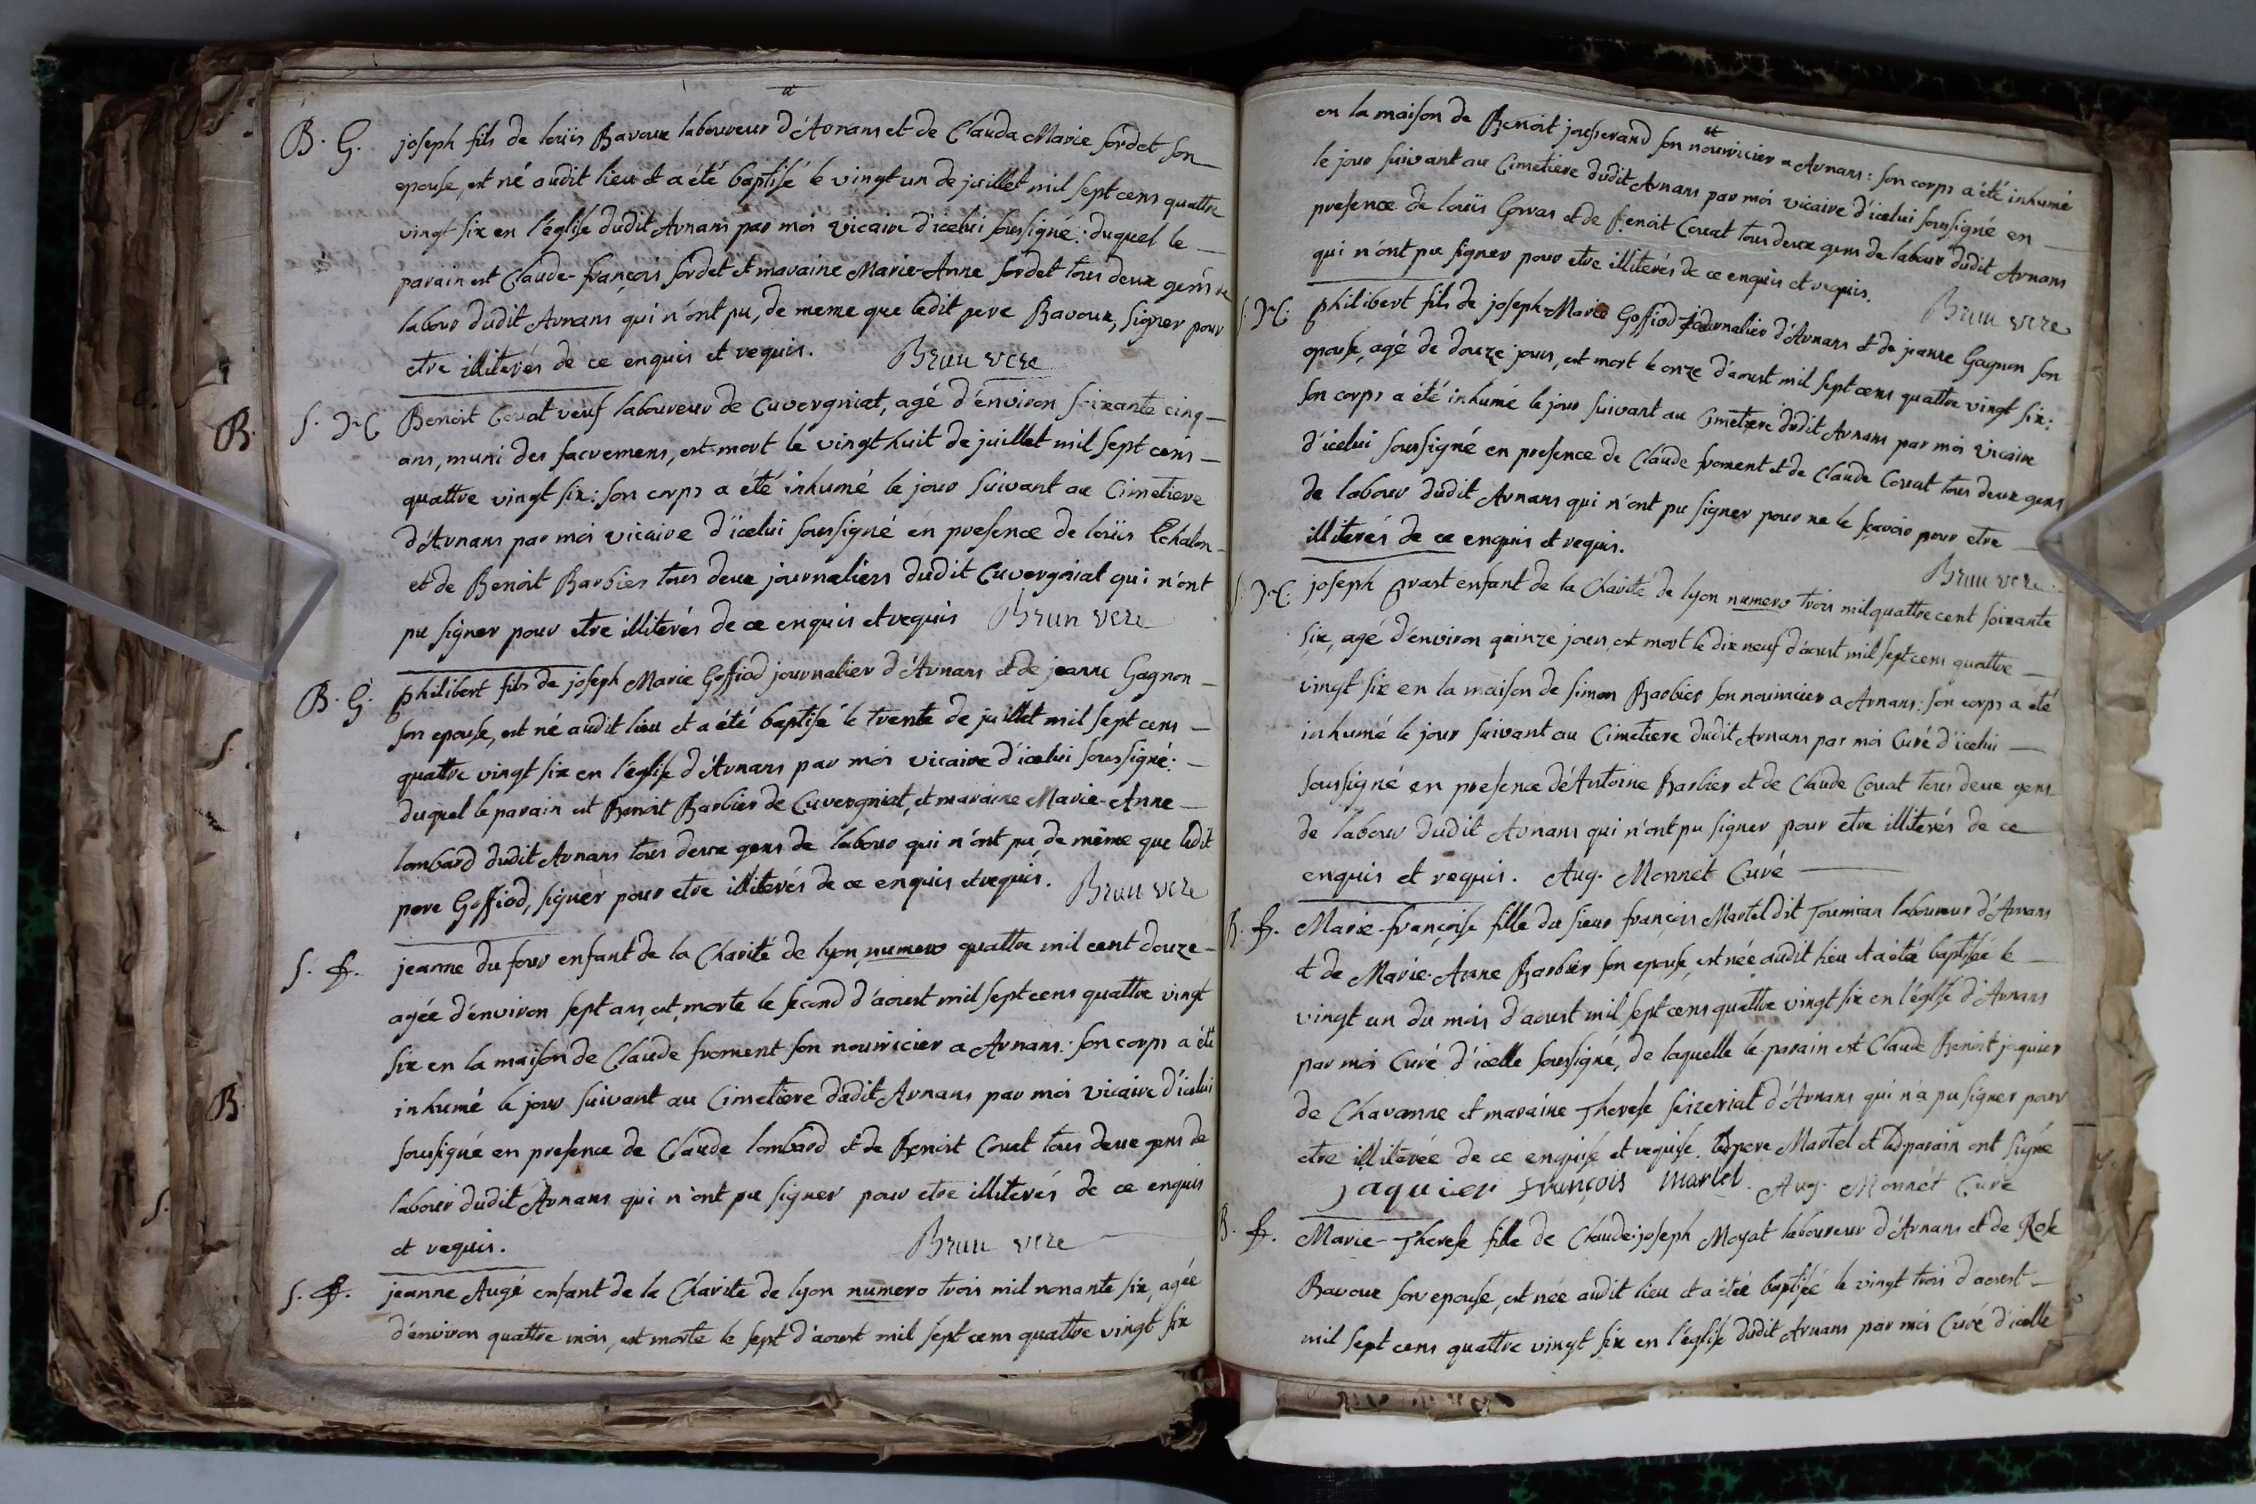 B. G. joseph fils de loüis Bavoux laboureur d'Arnans et de Clauda Marie sordet son
epouse, est né audit lieu et a été baptisé le vingt un de juillet mil sept cens quattre
vingt six en l'église dudit Arnans par moi vicaire d'icelui soussigné: duquel le
parain est Claude-françois sordet et maraine Marie-Anne sordet tous deux gens de
labour dudit Arnans qui n'ont pu, de meme que ledit pere Bavoux, signer pour
etre illiterés de ce enquis et requis. Brun vcre
S. Benoit Couat veuf laboureur de Cuvergniat, agé d'environ soixante cinq
ans, muni des sacremens, est mort le vingt huit de juillet mil sept cens
quattre vingt six: son corps a été inhumé le jour suivant au Cimetiere
d'Arnans par moi vicaire d'icelui soussigné en presence de loüis Echalon
et de Benoit Barbier tous deux journaliers dudit Cuvergniat qui n'ont
pu signer pour etre illiterés de ce enquis et requis Brun vcre
B. G. philibert fils de joseph Marie Goffiod journalier d'Arnans et de jeanne Gagnon
son epouse, est né audit lieu et a été baptisé le trente de juillet mil sept cens
quattre vingt six en l'église d'Arnans par moi vicaire d'icelui soussigné:
duquel le parain est Benoit Barbier de Cuvergniat, et maraine Marie-Anne
lombard dudit Arnans tous deux gens de labour qui n'ont pu, de même que ledit
pere Goffiod, signer pour etre illiterés de ce enquis et requis. Brun vcre
S. f. jeanne du four enfant de la Charité de lyon, numero quattre mil cent douze
agée d'environ sept ans, est morte le second d'aoust mil sept cens quattre vingt
six en la maison de Claude froment son nourricier a Arnans: son corps a été
inhumé le jour suivant au Cimetiere dudit Arnans par moi vicaire d'icelui
soussigné en presence de Claude lombard et de Benoit Couat tous deux gens de
labour dudit Arnans qui n'ont pu signer pour etre illiterés de ce enquis
et requis. Brun vcre
S. f. jeanne Augé enfant de la Charité de lyon numero trois mil nonante six, agée
d'environ quattre mois, est morte le sept d'aoust mil sept cens quattre vingt six
en la maison de Benoit jouserand son nourricier a Arnans: son corps a été inhumé
le jour suivant au Cimetiere dudit Arnans par moi vicaire d'icelui soussigné en
presence de loüis Gorvas et de Benoit Couat tous deux gens de labour dudit Arnans
qui n'ont pu signer pour etre illiterés de ce enquis et requis.
Brun vcre
philibert fils de joseph-Marie Goffiod journalier d'Arnans et de jeanne Gagnon son
epouse, agé de douze jours, est mort le onze d'aoust mil sept cens quattre vingt six:
son corps a été inhumé le jour suivant au Cimetiere dudit Arnans par moi vicaire
d'icelui soussigné en presence de Claude froment et de Claude Couat tous deux gens
de labour dudit Arnans qui n'ont pu signer pour ne le scavoir pour etre
illiterés de ce enquis et requis.
Brun vcre
joseph enfant de la Charité de lyon numero trois mil quattre cent soixante
six, agé d'environ quinze jours, est mort le dix neuf d'aoust mil sept cens quattre
vingt six en la maison de simon Barbier son nourricier a Arnans: son corps a été
inhumé le jour suivant au Cimetiere dudit Arnans par moi Curé d'icelui
soussigné en presence d'Antoine Barbier et de Claude Couat tous deux gens
de labour dudit Arnans qui n'ont pu signer pour etre illiterés de ce
enquis et requis. Aug. Monnet Curé
B. f. Marie-françoise fille du sieur françois Martel dit Toumian laboureur d'Arnans
et de Marie-Anne Barbier son epouse, est née audit lieu et a été baptisée le
vingt un du mois d'aoust mil sept cens quattre vingt six en l'église d'Arnans
par moi Curé d'icelle soussigné, de laquelle le parain est Claude Benoit jaquier
de Chavanne et maraine Therese seizeriat d'Arnans qui n'a pu signer pour
etre illiterée de ce enquise et requise. ledpere Martel et ledparain ont signé
jaquier françois martel Aug. Monnet Curé
B. f. Marie-Therese fille de Claude-joseph Moyat laboureur d'Arnans et de Rose
Bavoux son epouse, est née audit lieu et a étée baptisée le vingt trois d'aoust
mil sept cens quattre vingt six en l'église dudit Arnans par moi Curé d'icelle